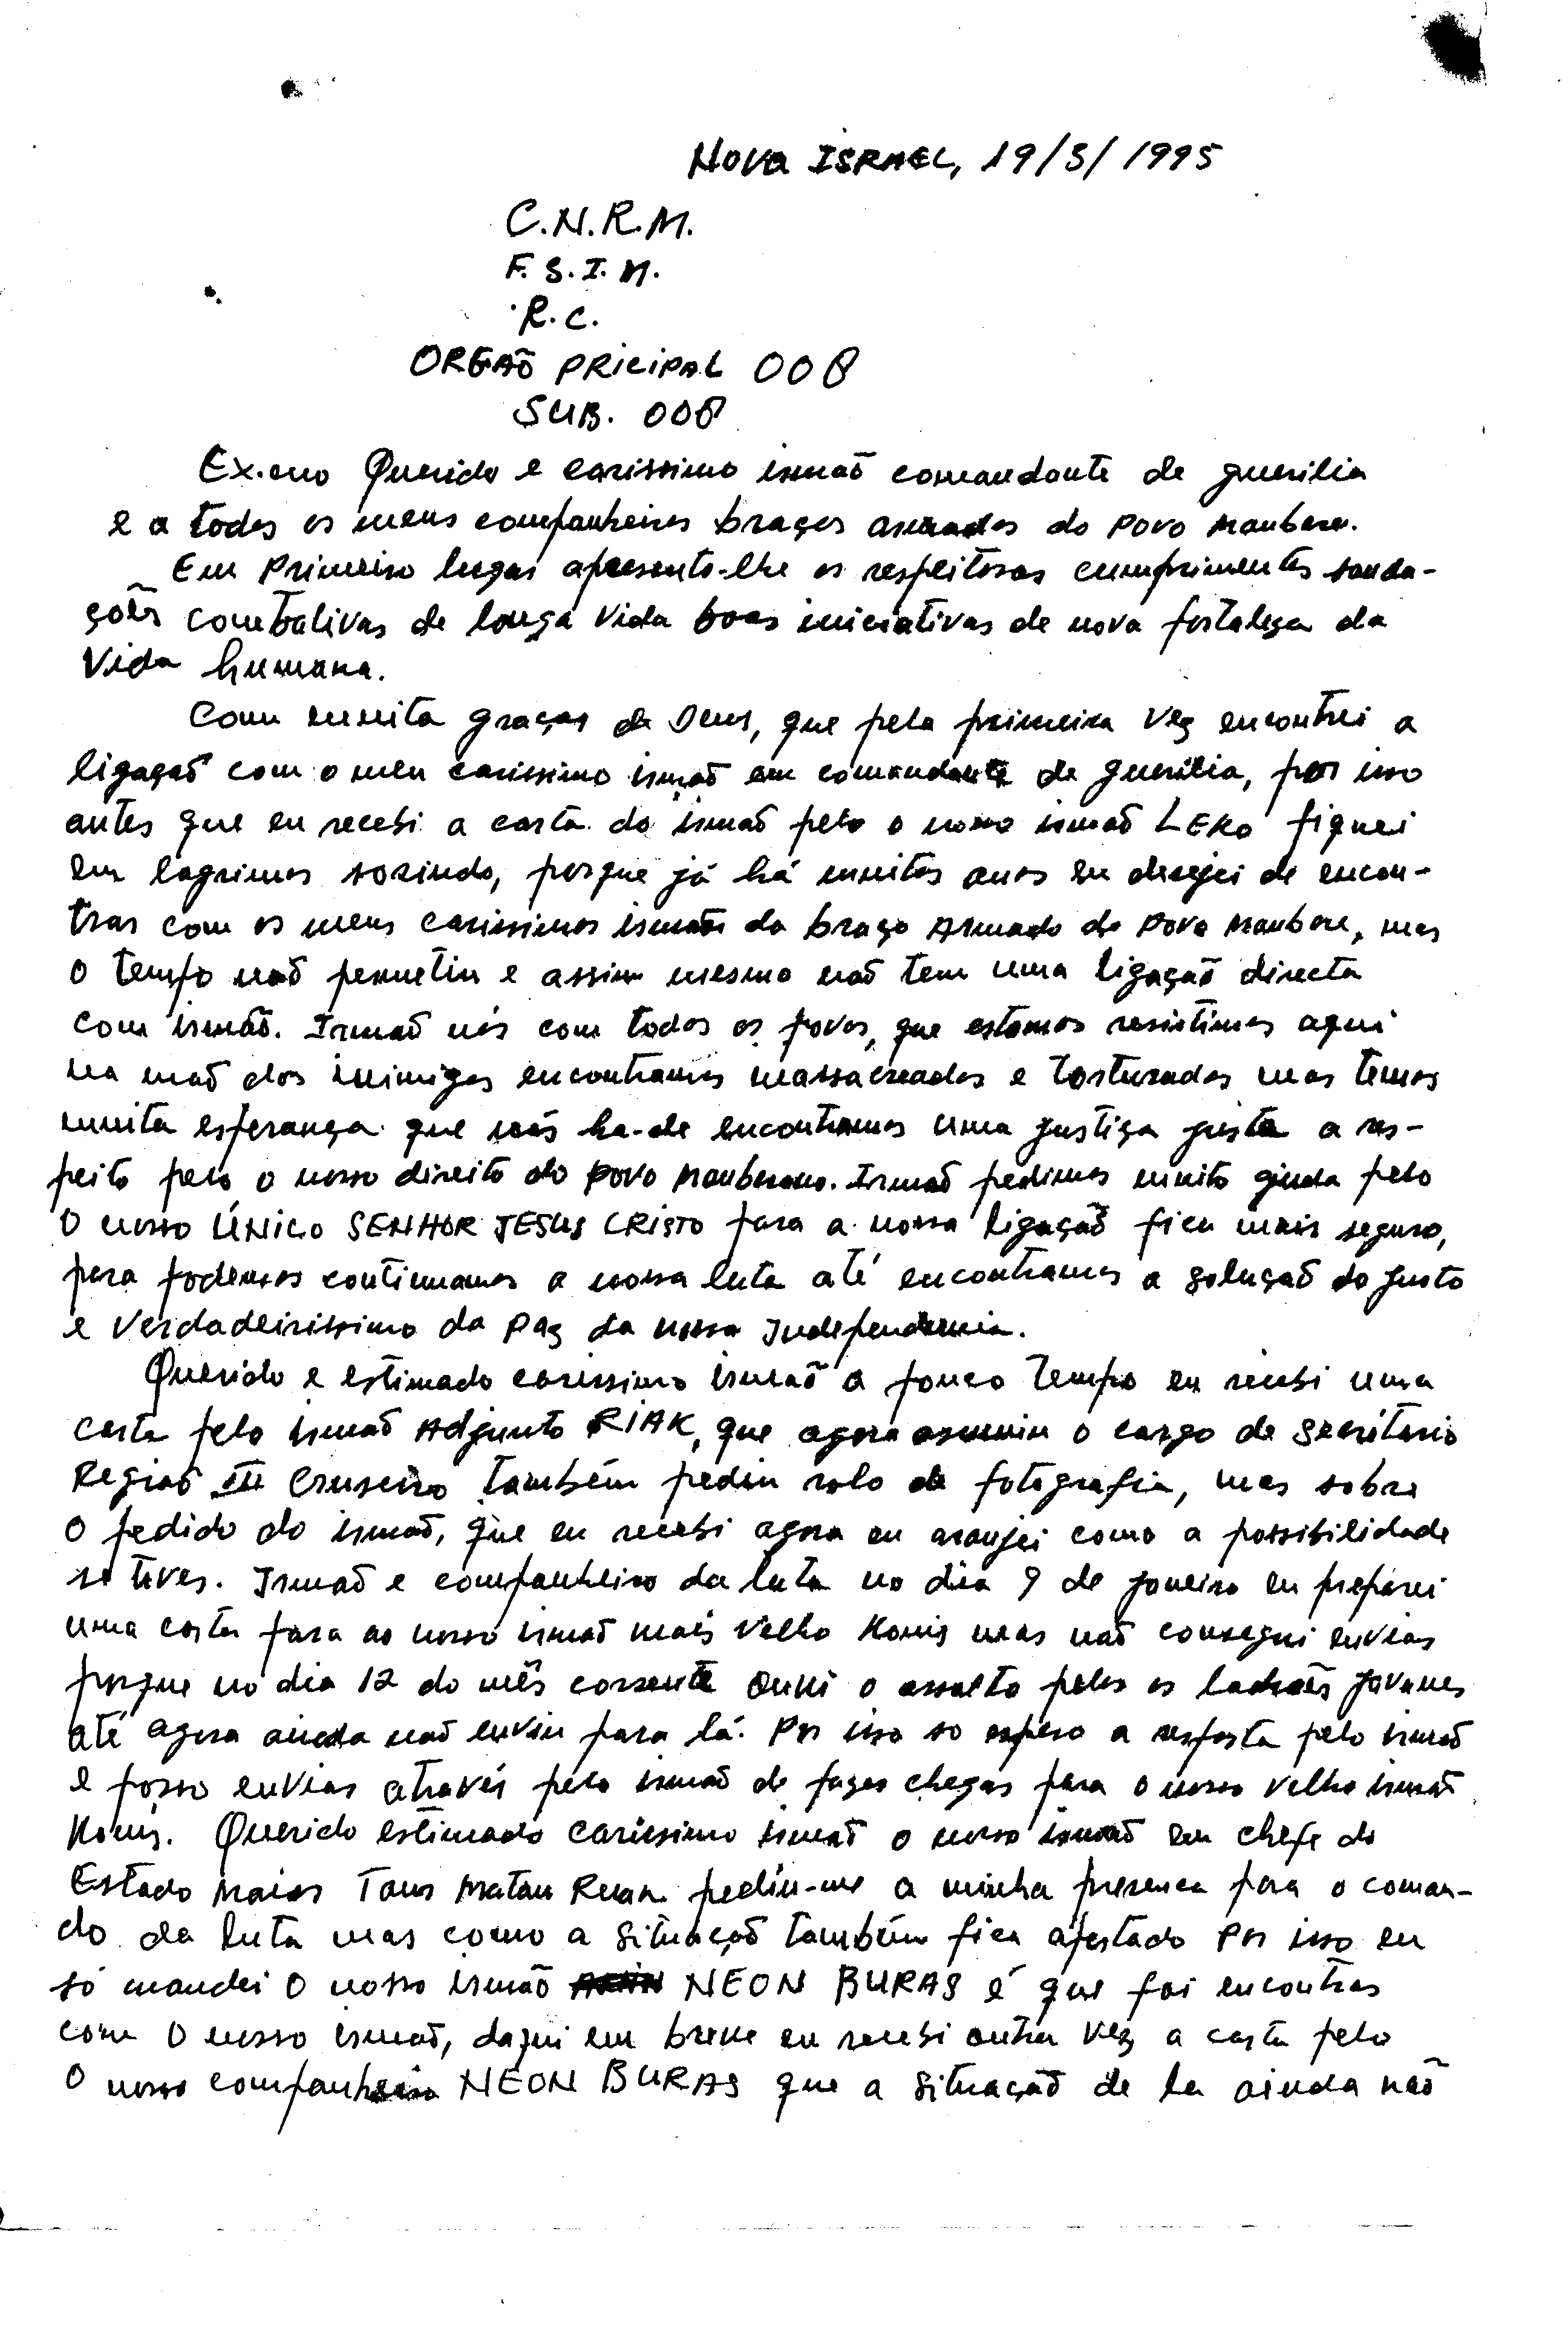 Nova ISRAEL, 19/3/1995
C.N.R.M.
F.S.I.M.
R.C.
ORGÃO PRICIPAL 008
SUB. 008
Ex.mo Querido e carissimo irmão comandante de guerilia
e a todos os meus companheiros braços armados do Povo Maubere.
Em Primeiro lugar apresento-lhe os respeitosos cumprimentos sauda-
ções combativas de longa vida boas iniciativas de nova fortaleza da
Vida humana.
Com muita graças de Deus, que pela primeira vez encontrei a
ligação com o meu carissimo irmão em comandante de guerilia, por isso
antes que eu recebi a carta do irmão pelo o nosso irmão LEKO fiquei
em lagrimas sorindo, porque já há muitos anos eu desejei de encon-
trar com os meus carissimos irmãos do braço Armado do Povo Maubere, mas
o tempo não permetiu e assim mesmo não tem uma ligação directa
com irmão. Irmão nós com todos os povos, que estamos resistimos aqui
na mão dos inimigos encontramos massacreados e torturados mas temos
muita esperança que nós ha-de encontramos uma justiça justa a res-
peito pelo o nosso direito do Povo Mauberano. Irmão pedimos muito ajuda pelo
o nosso ÚNICO SENHOR JESUS CRISTO para a nossa ligação fica mais seguro,
para podemos continuamos a nossa luta até encontramos a solução do justo
e Verdadeirissimo da Paz da nossa Independencia.
Querido e estimado carissimo irmão a pouco tempo eu recebi uma
carta pelo irmão Adjunto RIAK, que agora assumiu o cargo de Secritario
Região III Cruseiro também pediu rolo de fotografia, mas sobre
o pedido do irmão, que eu recebi agora eu aranjei como a possibilidade
se tiver. Irmão e companheiro da luta no dia 9 de Janeiro eu preparei
uma carta para ao nosso irmão mais Velho Konis mas não consegui enviar
porque no dia 12 do mês corrente ouvi o assalto pelos os ladrões javanes
até agora ainda não enviu para lá. Por isso so espero a resposta pelo irmão
e posso enviar através pelo irmão de fazer chegar para o nosso velho irmão
Konis. Querido estimado carissimo irmão o nosso irmão em chefe do
Estado Maior Taur Matan Ruak pediu-me a minha presenca para o coman-
do da luta mas como a situação também fica afastado Por isso eu
só mandei o nosso irmão NEON BURAS é que foi encontrar
com o nosso irmão, daqui em breve eu recebi outra vez a carta pelo
o nosso companheiro NEON BURAS que a situação de la ainda não